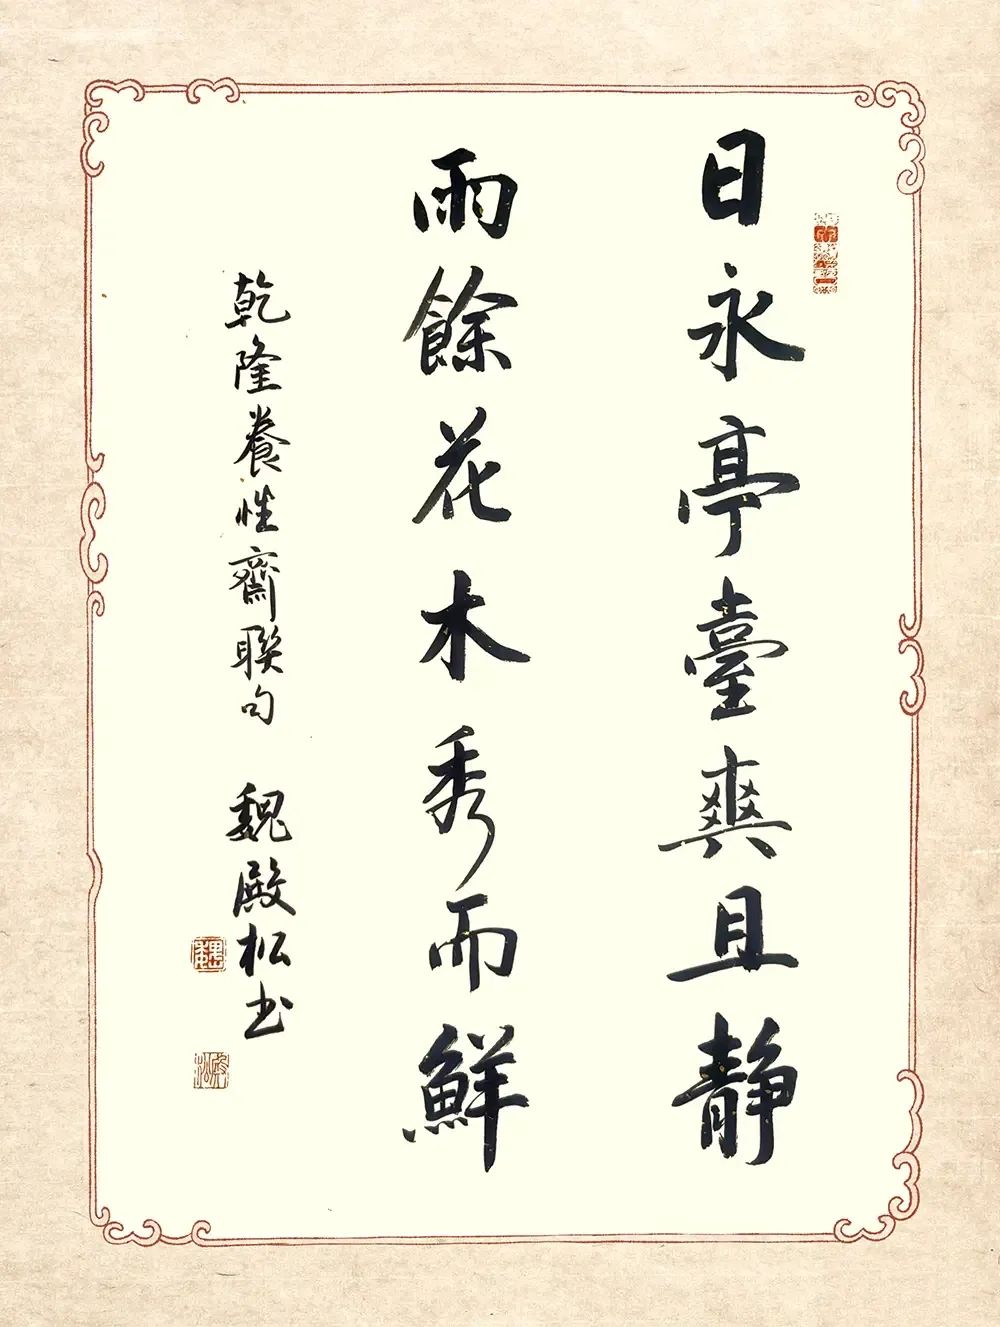 日永亭臺爽且靜
雨餘花木秀而鮮
乾隆養性齋聯句 魏殿松书
魏
殿松